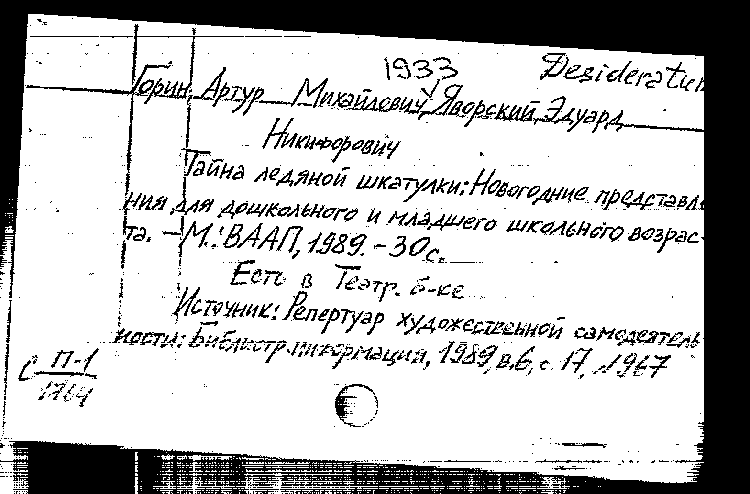 1933 Desideratum
Горин, Артур Михайлович, Яворский, Эдуард
Никифорович
Тайна ледяной шкатулки: Новогодние представле
ния для дошкольного и младшего школьного возрас-
та. - М.: ВААП, 1989. - 30 с.
Есть в Театр. б-ке
Источник: Репертуар художественной самодеятель
ности: Библиогр. информация, 1989, в. 6, с. 17, 1967
С П-1
1764